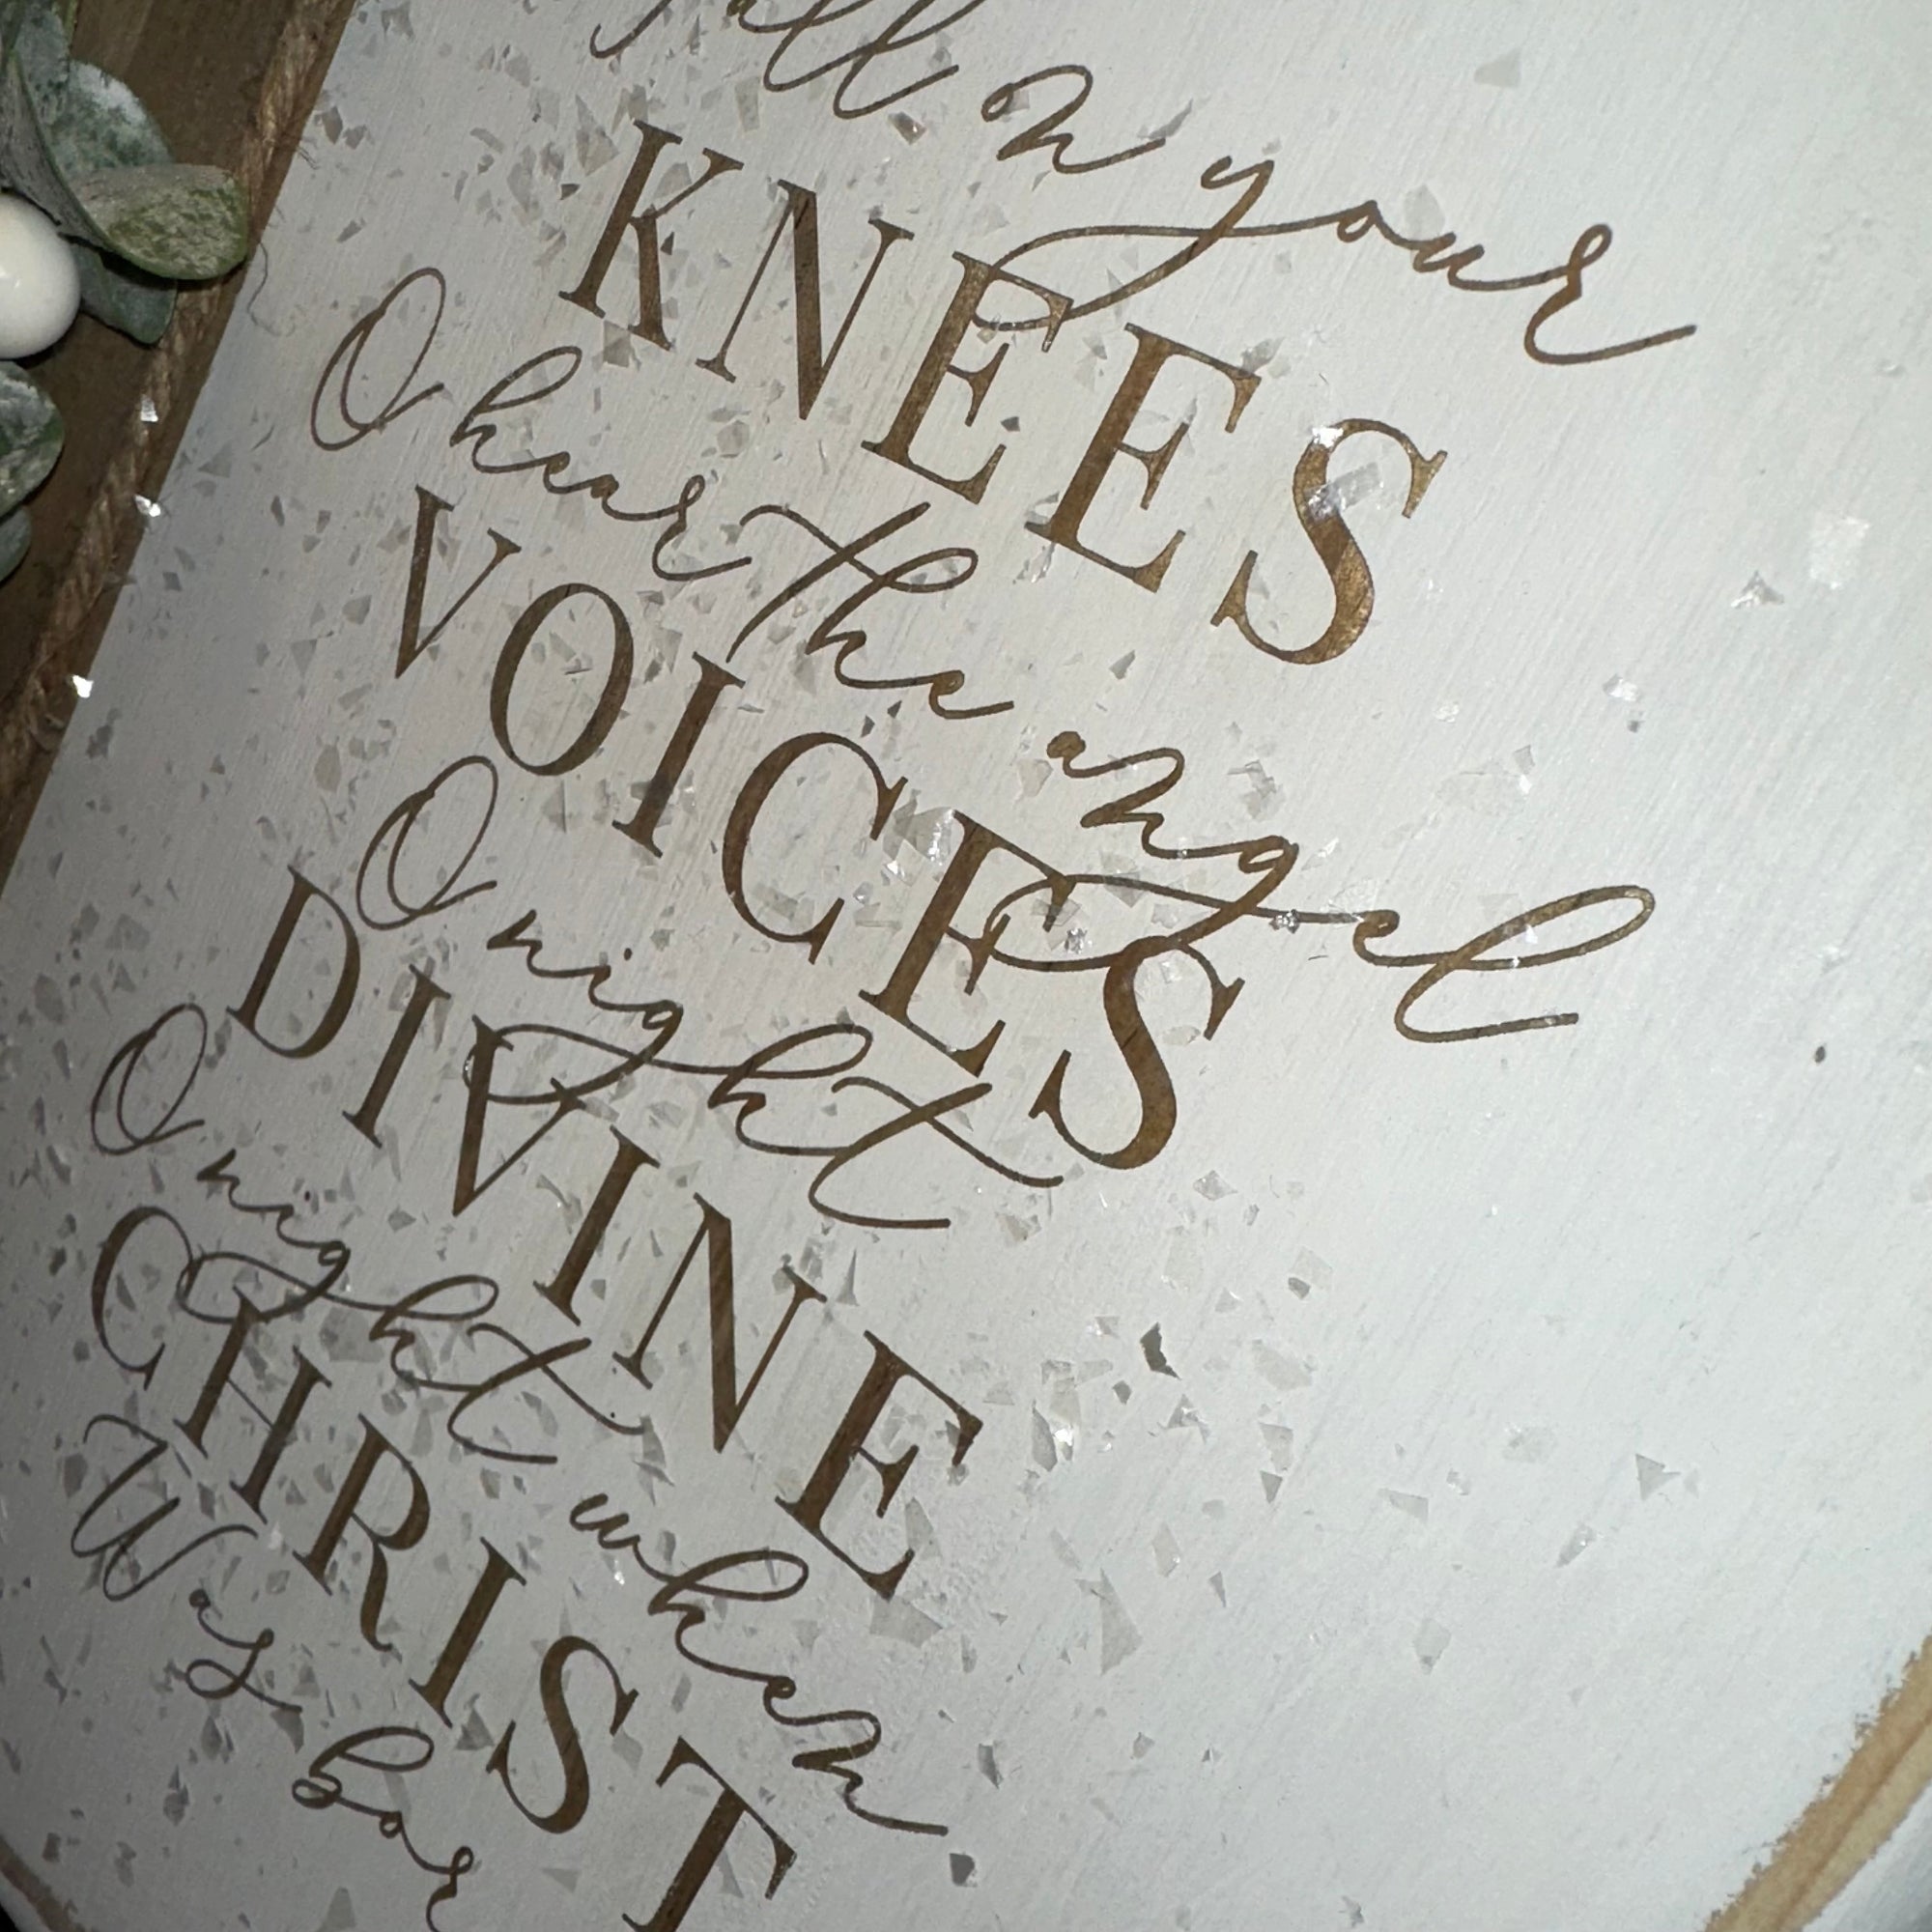 fall n your
KNEES
O hear the angel
VOICES
O night
DIVINE
O night when
CHRIST
Was bor